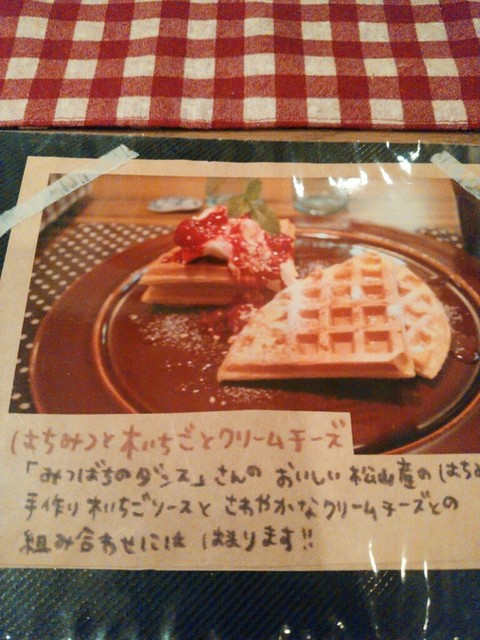 はちみつと木いちごとクリームチーズ
「みつばちのダンス」さんの おいしい 松山産の はちみ
手作り 木いちごソースと さわやかな クリームチーズとの
組み合わせには はまります!!